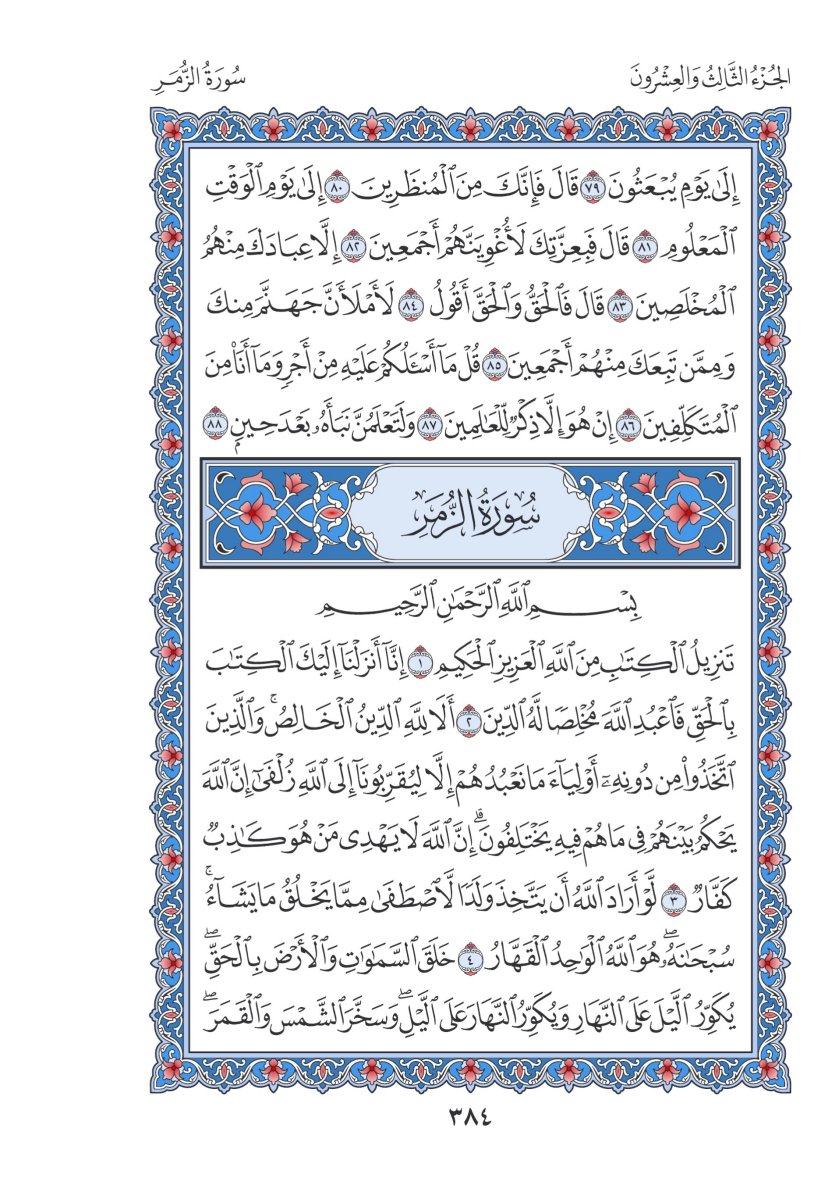 الجُزْءُ الثَّالِثُ وَالعِشْرُونَ
سُورَةُ الزُّمَرِ
إِلَىٰ يَوْمِ يُبْعَثُونَ ٧٩ قَالَ فَإِنَّكَ مِنَ ٱلْمُنظَرِينَ ٨٠ إِلَىٰ يَوْمِ ٱلْوَقْتِ
ٱلْمَعْلُومِ ٨١ قَالَ فَبِعِزَّتِكَ لَأُغْوِيَنَّهُمْ أَجْمَعِينَ ٨٢ إِلَّا عِبَادَكَ مِنْهُمُ
ٱلْمُخْلَصِينَ ٨٣ قَالَ فَٱلْحَقُّ وَٱلْحَقَّ أَقُولُ ٨٤ لَأَمْلَأَنَّ جَهَنَّمَ مِنكَ
وَمِمَّن تَبِعَكَ مِنْهُمْ أَجْمَعِينَ ٨٥ قُلْ مَآ أَسْـَٔلُكُمْ عَلَيْهِ مِنْ أَجْرٍ وَمَآ أَنَا۠ مِنَ
ٱلْمُتَكَلِّفِينَ ٨٦ إِنْ هُوَ إِلَّا ذِكْرٌ لِّلْعَالَمِينَ ٨٧ وَلَتَعْلَمُنَّ نَبَأَهُۥ بَعْدَ حِينٍۭ ٨٨
سُورَةُ الزُّمَرِ
بِسْمِ ٱللَّهِ ٱلرَّحْمَٰنِ ٱلرَّحِيمِ
تَنزِيلُ ٱلْكِتَٰبِ مِنَ ٱللَّهِ ٱلْعَزِيزِ ٱلْحَكِيمِ ١ إِنَّآ أَنزَلْنَآ إِلَيْكَ ٱلْكِتَٰبَ
بِٱلْحَقِّ فَٱعْبُدِ ٱللَّهَ مُخْلِصًا لَّهُ ٱلدِّينَ ٢ أَلَا لِلَّهِ ٱلدِّينُ ٱلْخَالِصُ ۚ وَٱلَّذِينَ
ٱتَّخَذُوا۟ مِن دُونِهِۦٓ أَوْلِيَآءَ مَا نَعْبُدُهُمْ إِلَّا لِيُقَرِّبُونَآ إِلَى ٱللَّهِ زُلْفَىٰٓ إِنَّ ٱللَّهَ
يَحْكُمُ بَيْنَهُمْ فِى مَا هُمْ فِيهِ يَخْتَلِفُونَ ۗ إِنَّ ٱللَّهَ لَا يَهْدِى مَنْ هُوَ كَٰذِبٌ
كَفَّارٌ ٣ لَّوْ أَرَادَ ٱللَّهُ أَن يَتَّخِذَ وَلَدًا لَّٱصْطَفَىٰ مِمَّا يَخْلُقُ مَا يَشَآءُ ۚ
سُبْحَٰنَهُۥ ۖ هُوَ ٱللَّهُ ٱلْوَٰحِدُ ٱلْقَهَّارُ ٤ خَلَقَ ٱلسَّمَٰوَٰتِ وَٱلْأَرْضَ بِٱلْحَقِّ ۖ
يُكَوِّرُ ٱلَّيْلَ عَلَى ٱلنَّهَارِ وَيُكَوِّرُ ٱلنَّهَارَ عَلَى ٱلَّيْلِ ۖ وَسَخَّرَ ٱلشَّمْسَ وَٱلْقَمَرَ ۖ
٣٨٤